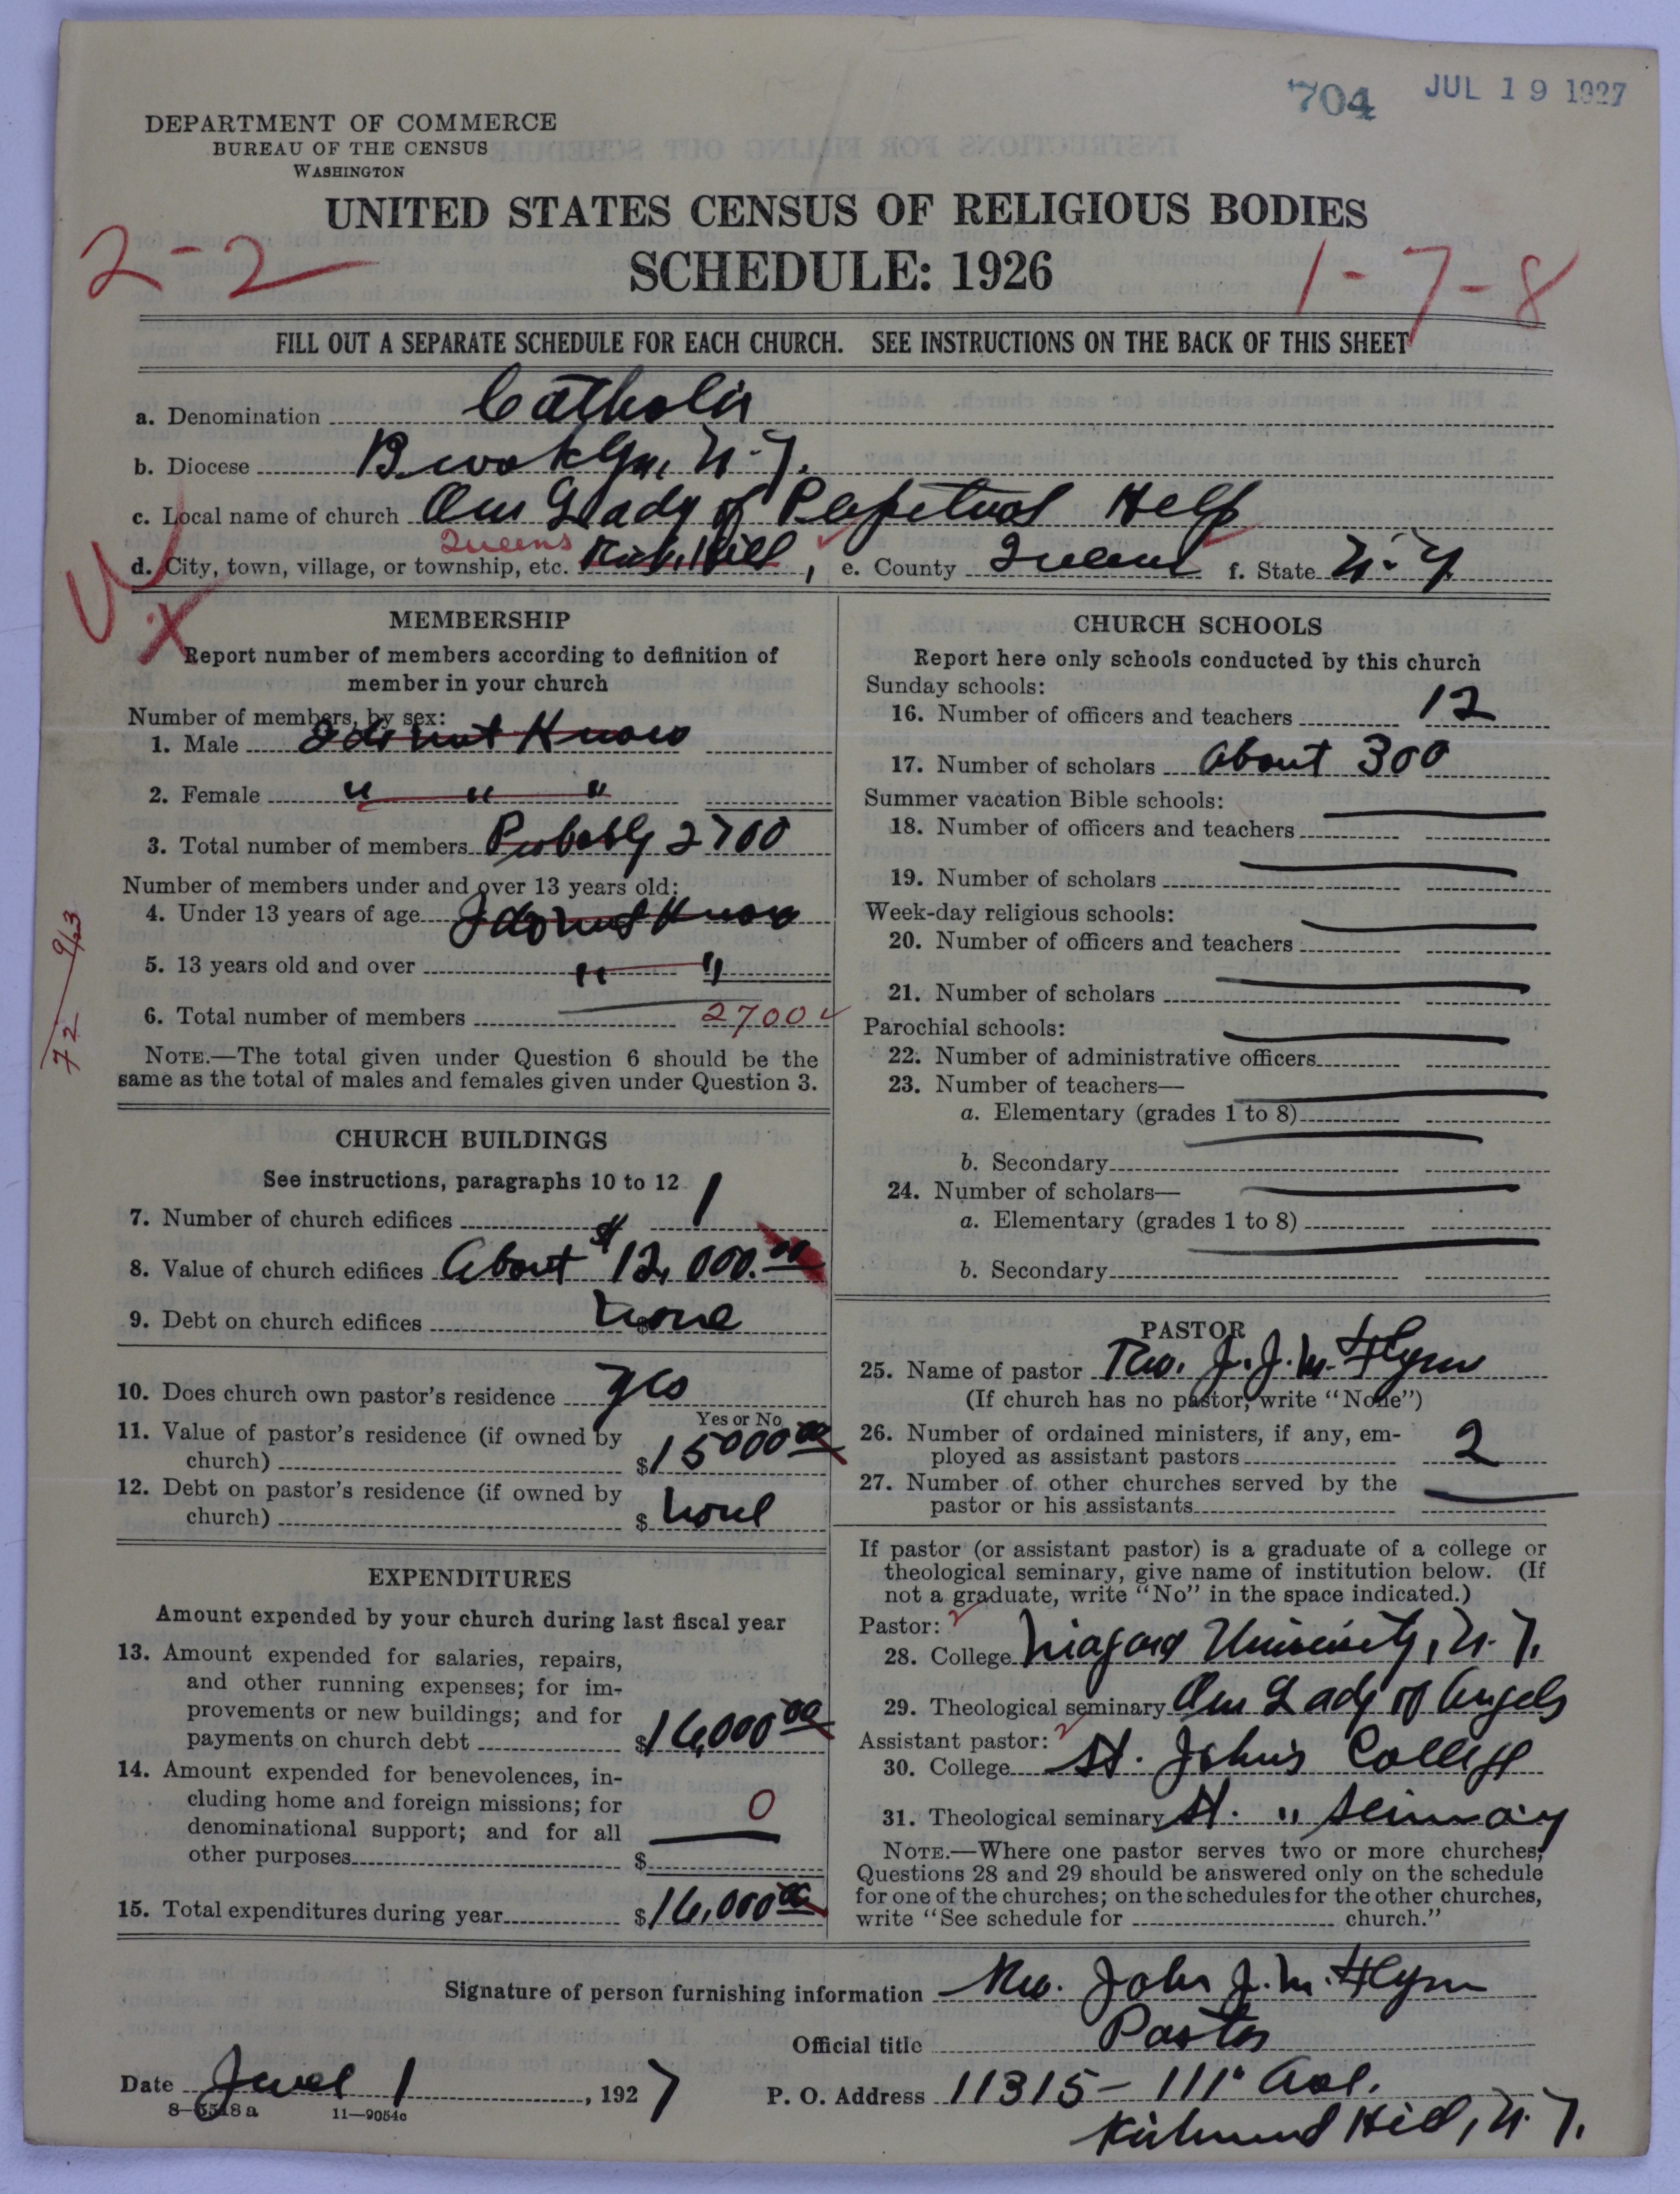 704 JUL 19 1927
DEPARTMENT OF COMMERCE
BUREAU OF THE CENSUS
WASHINGTON
UNITED STATES CENSUS OF RELIGIOUS BODIES
2-2 SCHEDULE: 1926 1-7-8
FILL OUT A SEPARATE SCHEDULE FOR EACH CHURCH. SEE INSTRUCTIONS ON THE BACK OF THIS SHEET
a. Denomination Catholic
b. Diocese Brooklyn, N.Y.
c. Local name of church Our Lady of Perpetual Help
Queens
d. City, town, village, or township, etc. Rich. Hill, e. County Queens f. State N.Y.
MEMBERSHIP
Report number of members according to definition of
member in your church
Number of members, by sex:
1. Male I do not Know
2. Female " " "
3. Total number of members Probably 2700
Number of members under and over 13 years old:
4. Under 13 years of age I do not Know
5. 13 years old and over " "
6. Total number of members 2700
NOTE.—The total given under Question 6 should be the
same as the total of males and females given under Question 3.
9/23
72
CHURCH BUILDINGS
See instructions, paragraphs 10 to 12
7. Number of church edifices 1
8. Value of church edifices About $12,000.00
9. Debt on church edifices $ none
10. Does church own pastor's residence Yes
Yes or No
11. Value of pastor's residence (if owned by
church) $15000 00
12. Debt on pastor's residence (if owned by
church) $ none
EXPENDITURES
Amount expended by your church during last fiscal year
13. Amount expended for salaries, repairs,
and other running expenses; for im-
provements or new buildings; and for
payments on church debt $16,000 00
14. Amount expended for benevolences, in-
cluding home and foreign missions; for
denominational support; and for all
other purposes $ 0
15. Total expenditures during year $16,000 00
CHURCH SCHOOLS
Report here only schools conducted by this church
Sunday schools:
16. Number of officers and teachers 12
17. Number of scholars About 300
Summer vacation Bible schools:
18. Number of officers and teachers
19. Number of scholars
Week-day religious schools:
20. Number of officers and teachers
21. Number of scholars
Parochial schools:
22. Number of administrative officers
23. Number of teachers—
a. Elementary (grades 1 to 8)
b. Secondary
24. Number of scholars—
a. Elementary (grades 1 to 8)
b. Secondary
PASTOR
25. Name of pastor Rev. J. J. M. Flynn
(If church has no pastor, write "None")
26. Number of ordained ministers, if any, em-
ployed as assistant pastors 2
27. Number of other churches served by the
pastor or his assistants
If pastor (or assistant pastor) is a graduate of a college or
theological seminary, give name of institution below. (If
not a graduate, write "No" in the space indicated.)
Pastor:
28. College Niagara University, N.Y.
29. Theological seminary Our Lady of Angels
Assistant pastor:
30. College St. John's College
31. Theological seminary St. " Seminary
NOTE.—Where one pastor serves two or more churches,
Questions 28 and 29 should be answered only on the schedule
for one of the churches; on the schedules for the other churches,
write "See schedule for church."
Signature of person furnishing information Rev. John J. M. Flynn
Official title Pastor
Date June 1, 1927 P. O. Address 11315 - 111' Ave.
8-5518a 11—9054c
Richmond Hill, N.Y.